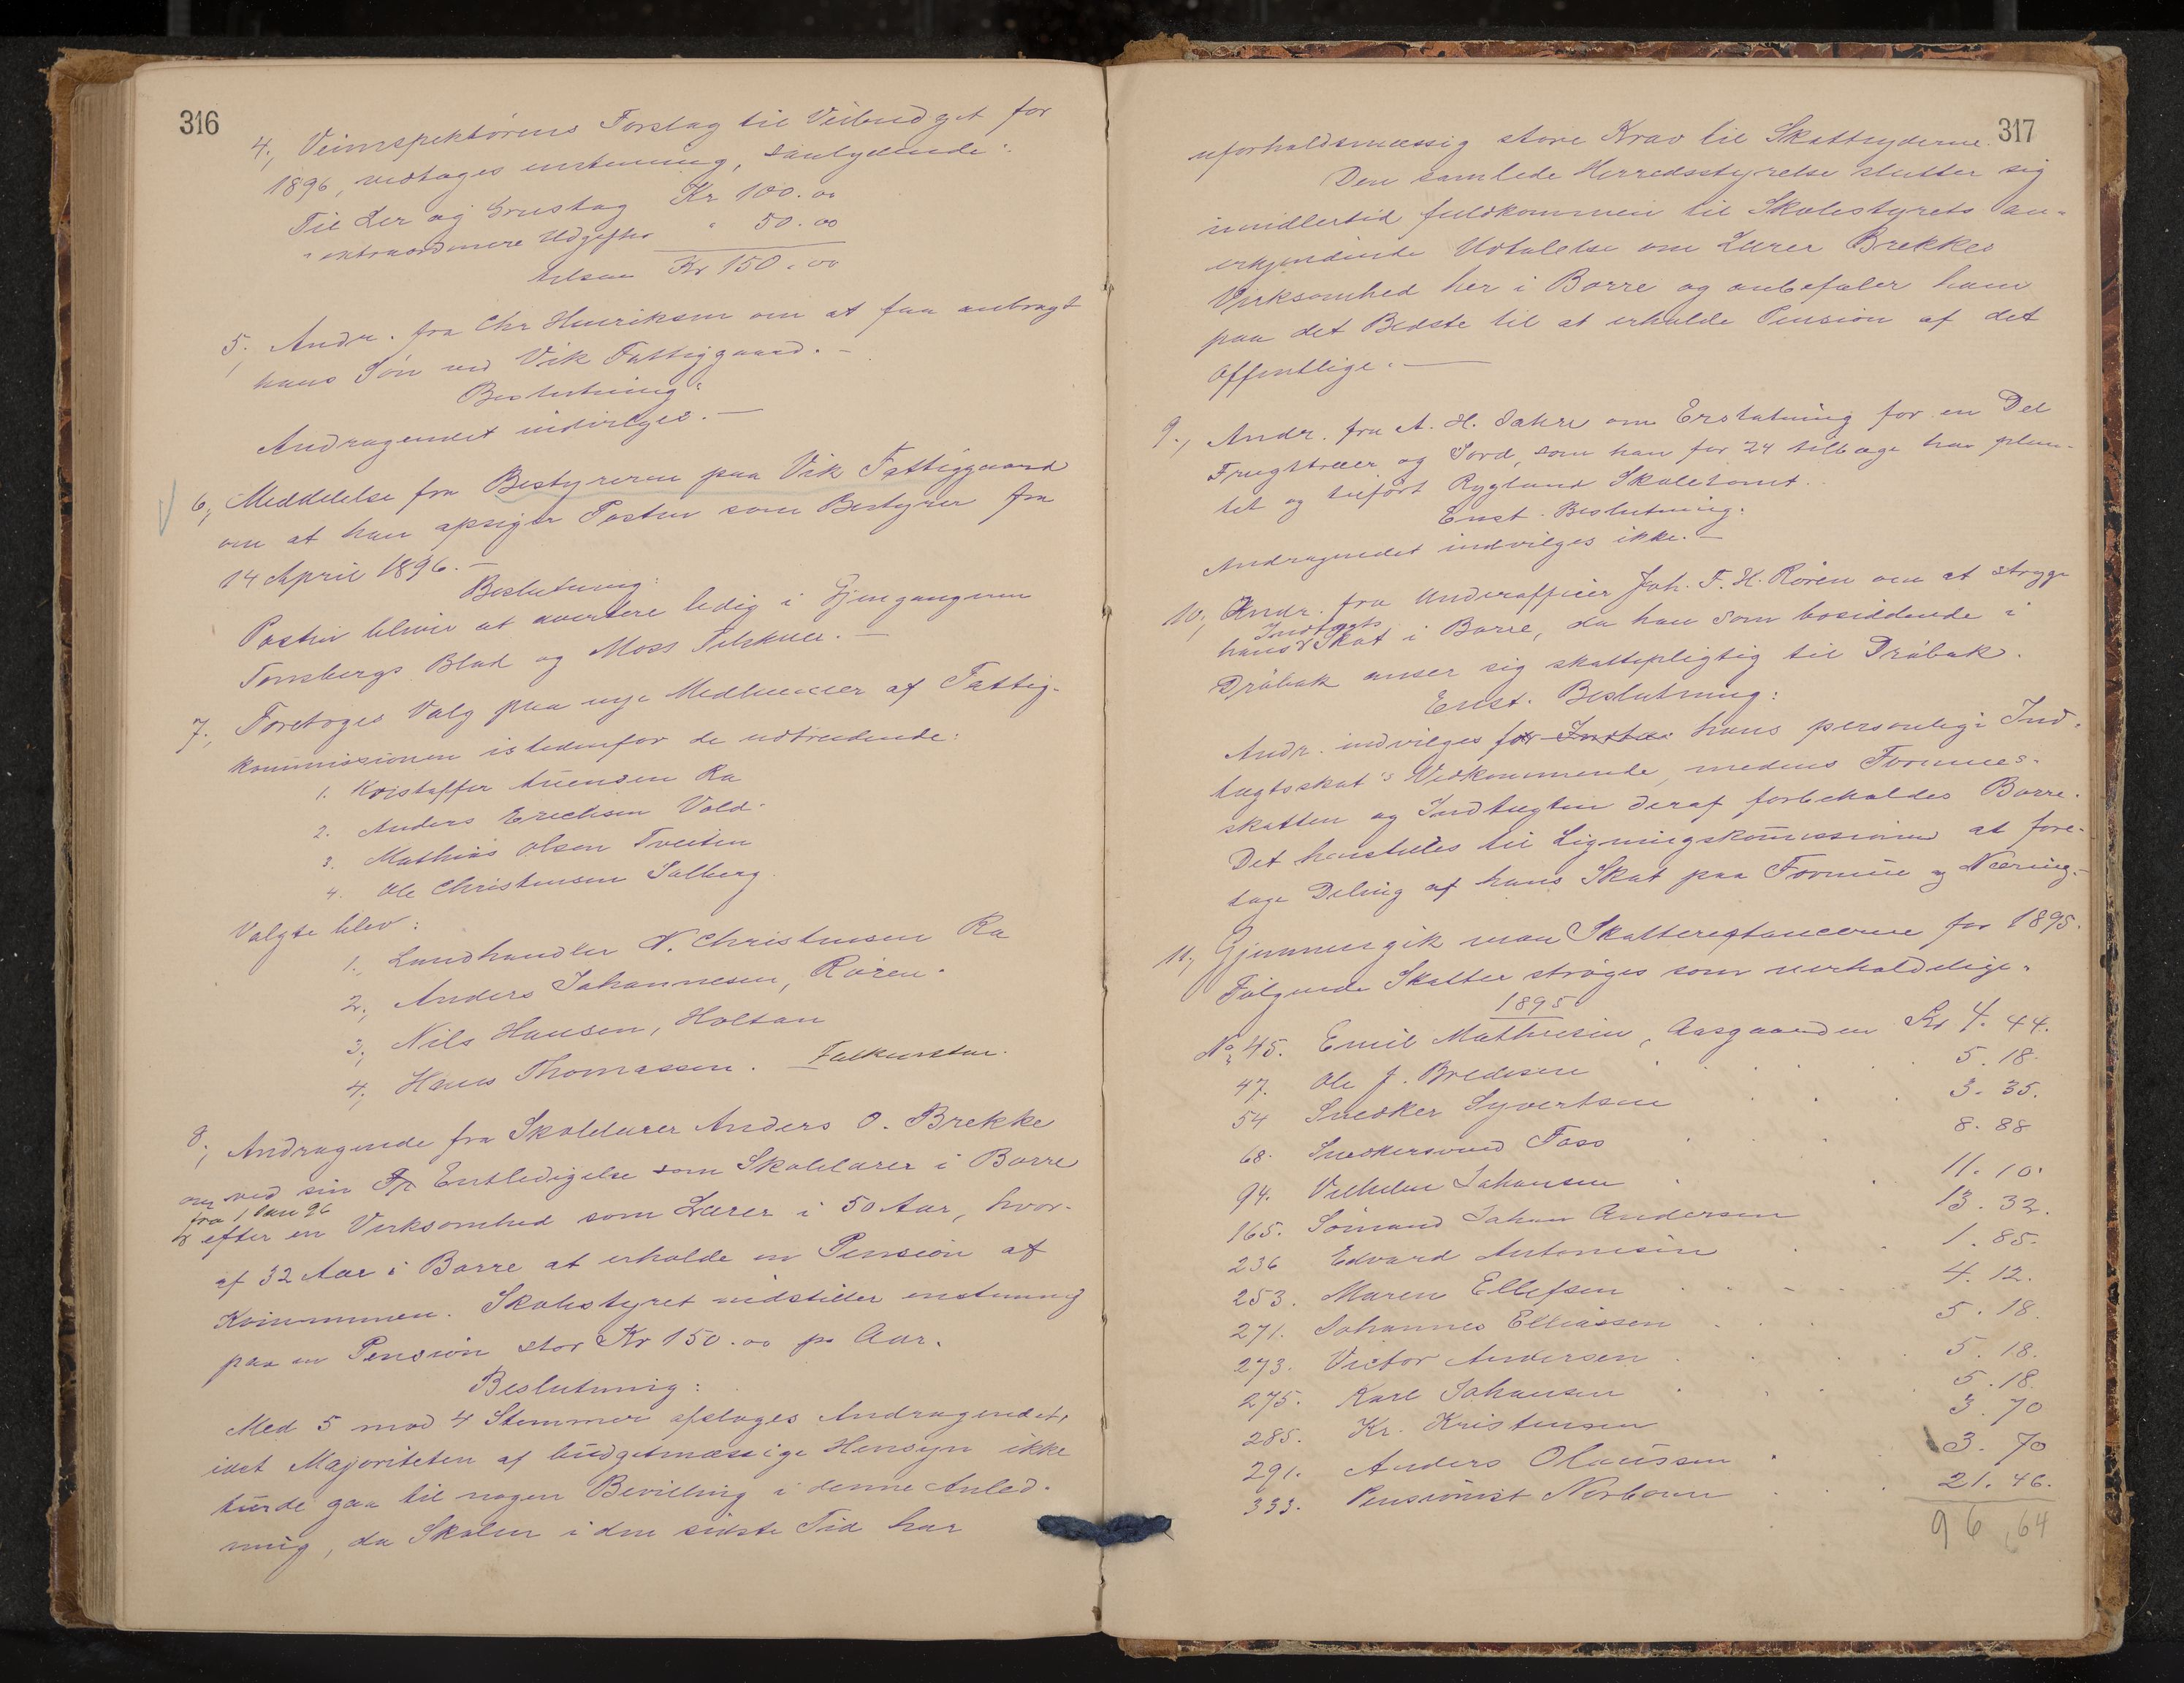 316
4., Veiinspektörens Forslag til Veibudget for
1896, vedtages enstemmig, saalydende:
Til Ler og Grustag Kr 100.00
" extraordinære Udgifter " 50.00
tilsam Kr 150.00
5., Andr. fra Chr Henriksen om at faa anbragt
hans Sön ved Vik Fattiggaard. —
Beslutning:
Andragendet indvilges. —
6., Meddelelse fra Bestyreren paa Vik Fattiggaard
om at han opsiger Posten som Bestyrer fra
14 April 1896. —
Beslutning:
Posten bliver at avertere ledig i Gjengangeren
Tønsbergs Blad og Moss Tilskuer. —
7., Foretoges Valg paa nye Medlemmer af Fattig-
kommissionen istedenfor de udtrædende:
1. Kristoffer Ra
2. Anders Erichsen Vold.
3. Mathias Olsen Tveiten
4. Ole Christensen Solberg.
Valgte blev:
1., Landhandler N. Christensen Ra
2., Anders Johannesen, Rören.
3., Nils Hansen, Holtan
4., Hans Thomassen. Falkensten.
8., Andragende fra Skolelærer Anders O. Brekke
om ved sin Fr Entledigelse som Skolelærer i Borre
fra 1 Jan 96
& efter en Virksomhed som Lærer i 50 Aar, hvor-
af 32 Aar i Borre at erholde en Pension af
Kommunen. Skolestyret indstiller enstemmig
paa en Pension stor Kr 150.00 pr Aar.
Beslutning:
Med 5 mod 4 Stemmer afsloges Andragendet,
idet Majoriteten af budgetmæssige Hensyn ikke
turde gaa til nogen Bevilling i denne Anled-
ning, da Skolen i den sidste Tid har
317
uforholdsmæssig store Krav til Skatteyderne.
Den samlede Herredsstyrelse slutter sig
imidlertid fuldkommen til Skolestyrets an-
erkjendende Udtalelse om Lærer Brekkes
Virksomhed her i Borre og anbefaler ham
paa det Bedste til at erholde Pension af det
Offentlige. —
9., Andr. fra A. H. Sahre om Erstatning for en Del
Frugttræer og Jord, som han for 24 tilbage har plan-
tet og tilfört Rygland Skoletomt.
Enst. Beslutning:
Andragendet indvilges ikke. —
10., Andr. fra Underofficer Joh. F. H. Rören om at stryge
Indtægts
hans Skat i Borre, da han som bosiddende i
Dröbak anser sig skattepligtig til Dröbak.
Enst. Beslutning:
Andr. indvilges for Indtæ hans personlige Ind-
tægtsskat's Vedkommende, medens Formues-
skatten og Indtægten deraf forbeholdes Borre.
Det henstilles til Ligningskommissionen at fore-
tage Deling af hans Skat paa Formue og Næring. —
11., Gjennemgik man Skatterestancerne for 1895.
Fölgende Skatter ströges som uerholdelige.
1895
No 45. Emil Mathiesen, Aasgaarden Kr 4.44.
47. Ole J. Bredesen 5.18.
54 Snedker Syvertsen 3.35.
68. Snedkersvend Foss 8.88
94. Vilhelm Johansen 11.10.
165. Sömand Johan Andersen 13.32.
236 Edvard Antonisen 1.85.
253. Maren Ellefsen 4.12.
271. Johannes Elliassen 5.18.
273. Victor Andersen 5.18.
275. Karl Johansen 5.18.
285. Kr. Kristensen 3.70
291. Anders Olaussen 3.70
333. Pensionist Norbom 21.46.
96,64